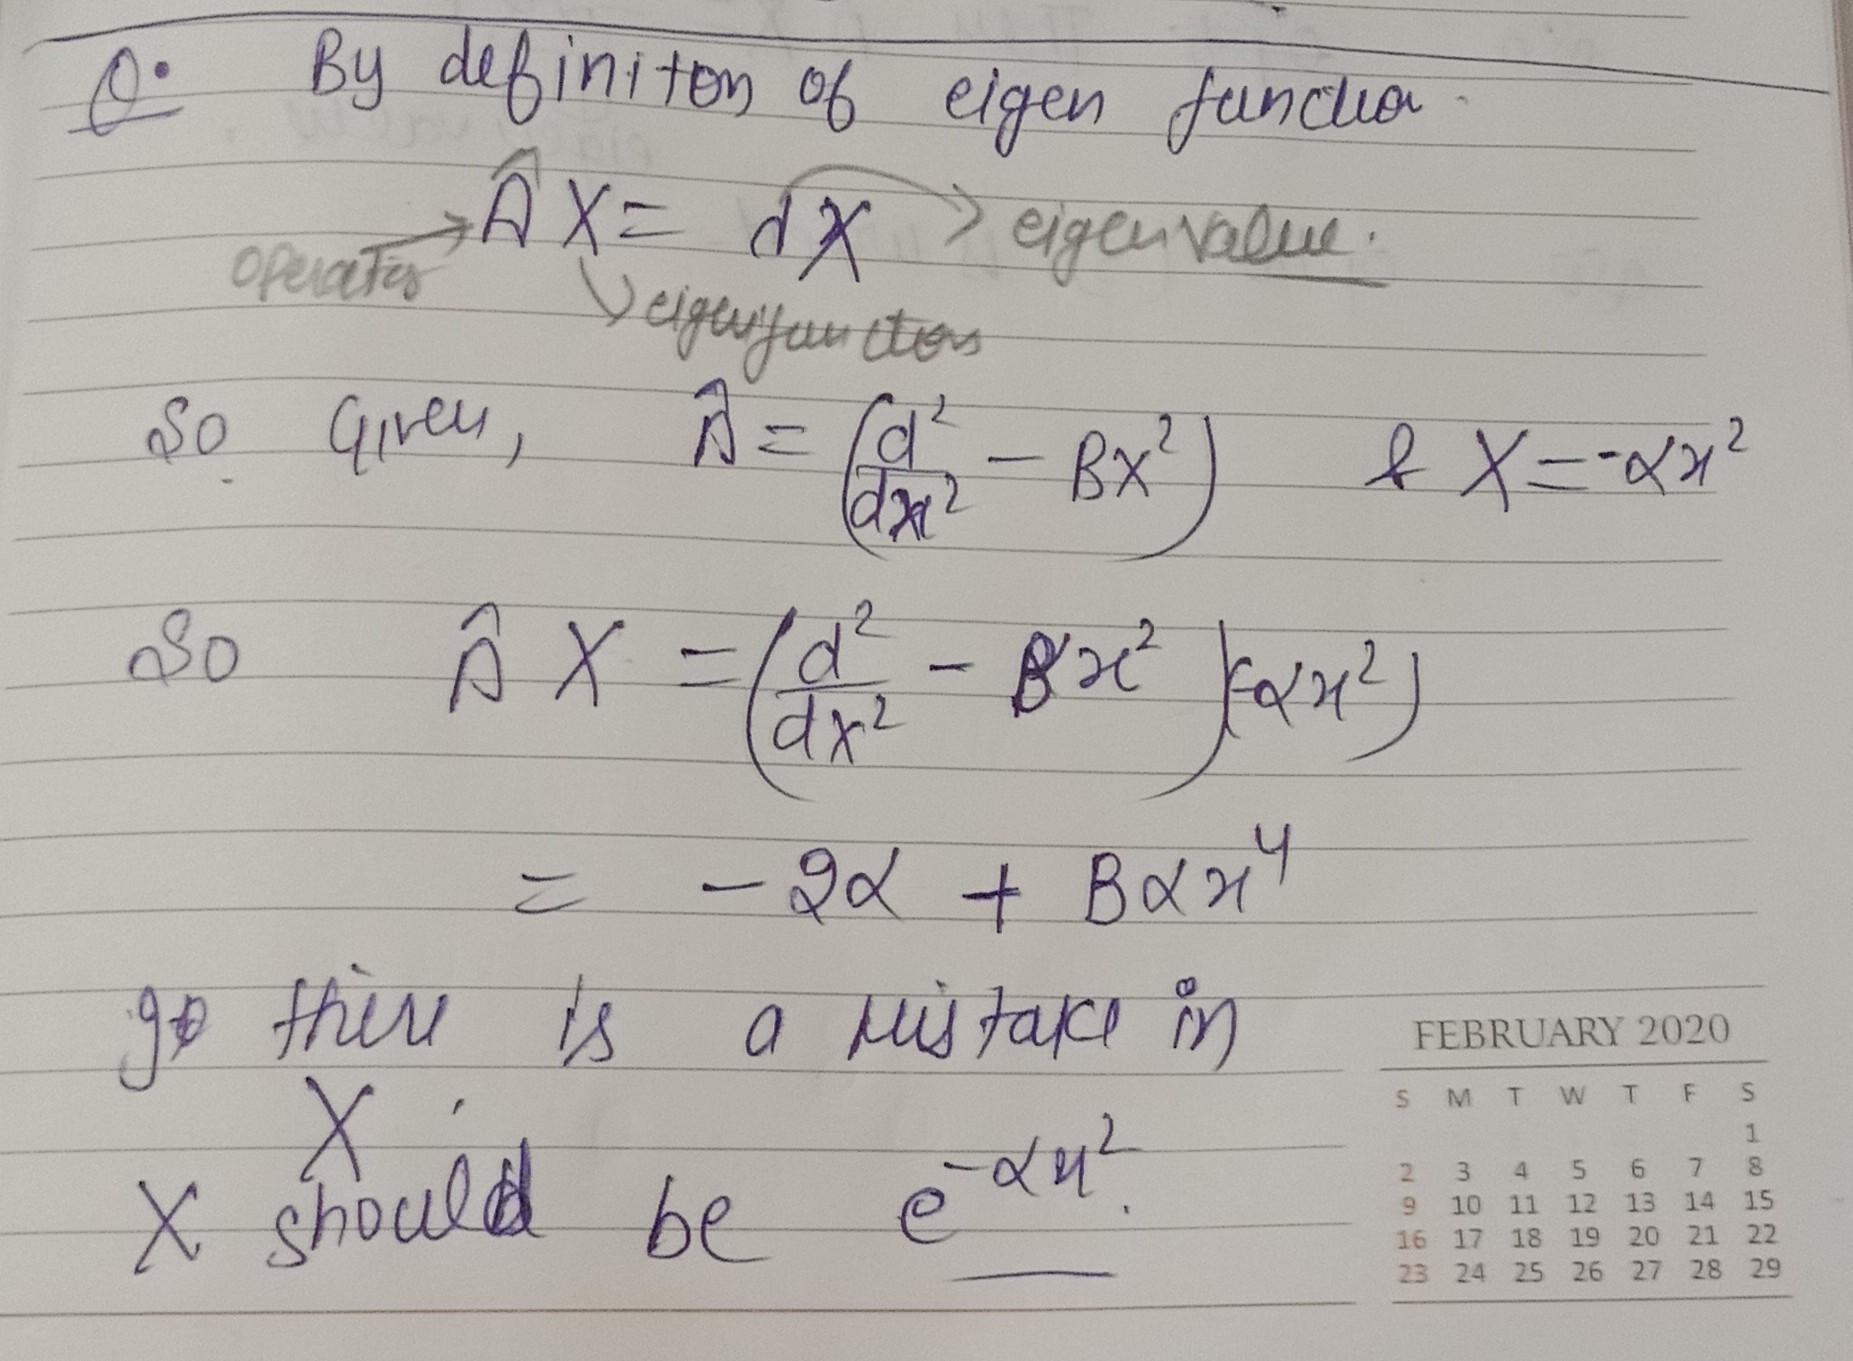 Q. By definiton of eigen function.
Â X = dX > eigenvalue.
operator → ↘ eigenfunction
So Given, Â = (d²/dx² - Bx²) & X = -αx²
So Â X = (d²/dx² - Bx²)(-αx²)
= - 2α + Bαx⁴
so there is a mistake in
X
X should be e^{-αx²}.
FEBRUARY 2020
S M T W T F S
1
2 3 4 5 6 7 8
9 10 11 12 13 14 15
16 17 18 19 20 21 22
23 24 25 26 27 28 29